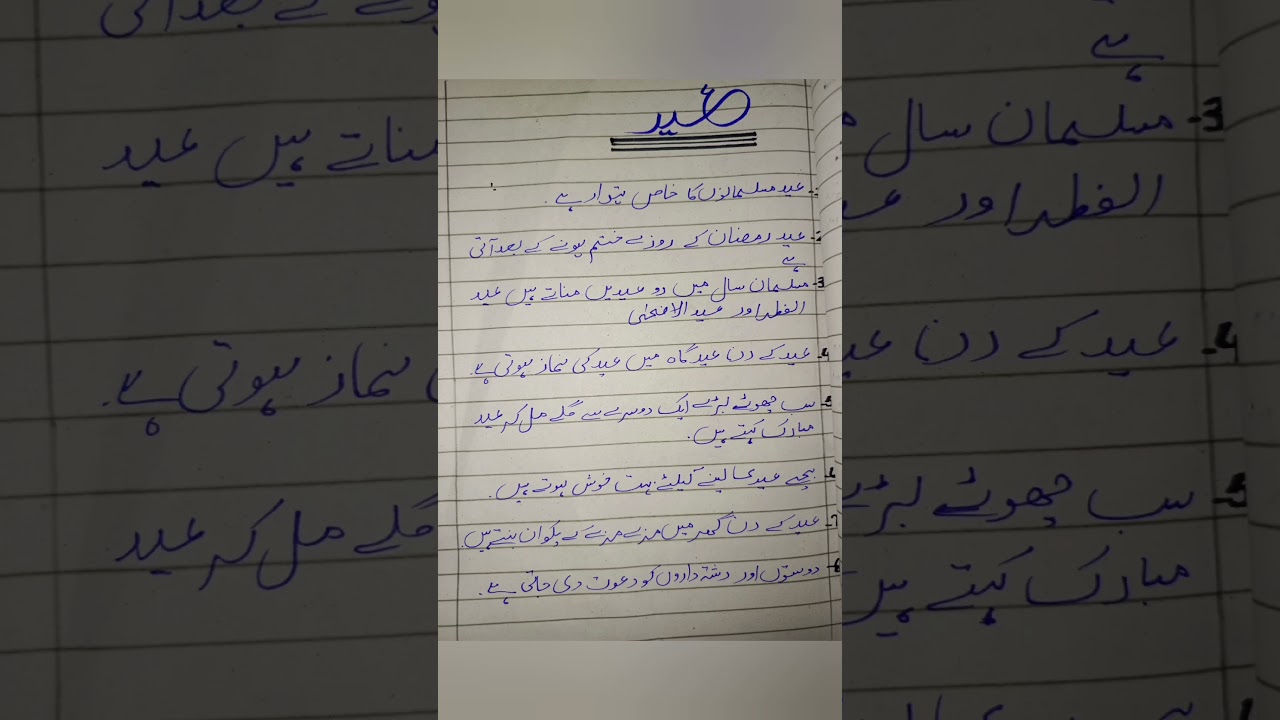 عید
1- عید مسلمانوں کا خاص تہوار ہے.
2- عید رمضان کے روزے ختم ہونے کے بعد آتی
ہے
3- مسلمان سال میں دو عیدیں مناتے ہیں عید
الفطر اور عید الاضحٰی
4- عید کے دن عید گاہ میں عید کی نماز ہوتی ہے.
5- سب چھوٹے بڑے ایک دوسرے سے گلے مل کر عید
مبارک کہتے ہیں.
6- بچے عید کیلئے بہت خوش ہوتے ہیں.
7- عید کے دن گھر میں مزے مزے کے پکوان بنتے ہیں
8- دوستوں اور رشتہ داروں کو دعوت دی جاتی ہے.